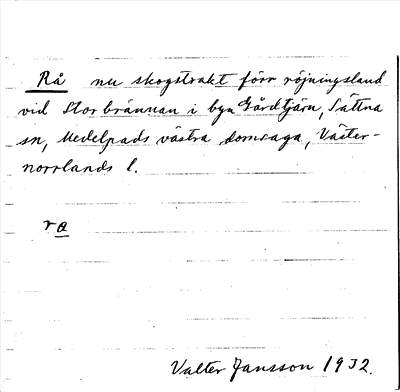 Rå nu skogstrakt förr röjningsland
vid Storbrännan i byn Gårdtjärn, Sättna
sn, Medelpads västra domsaga, Väster-
norrlands l.
ra
Valter Jansson 1932.